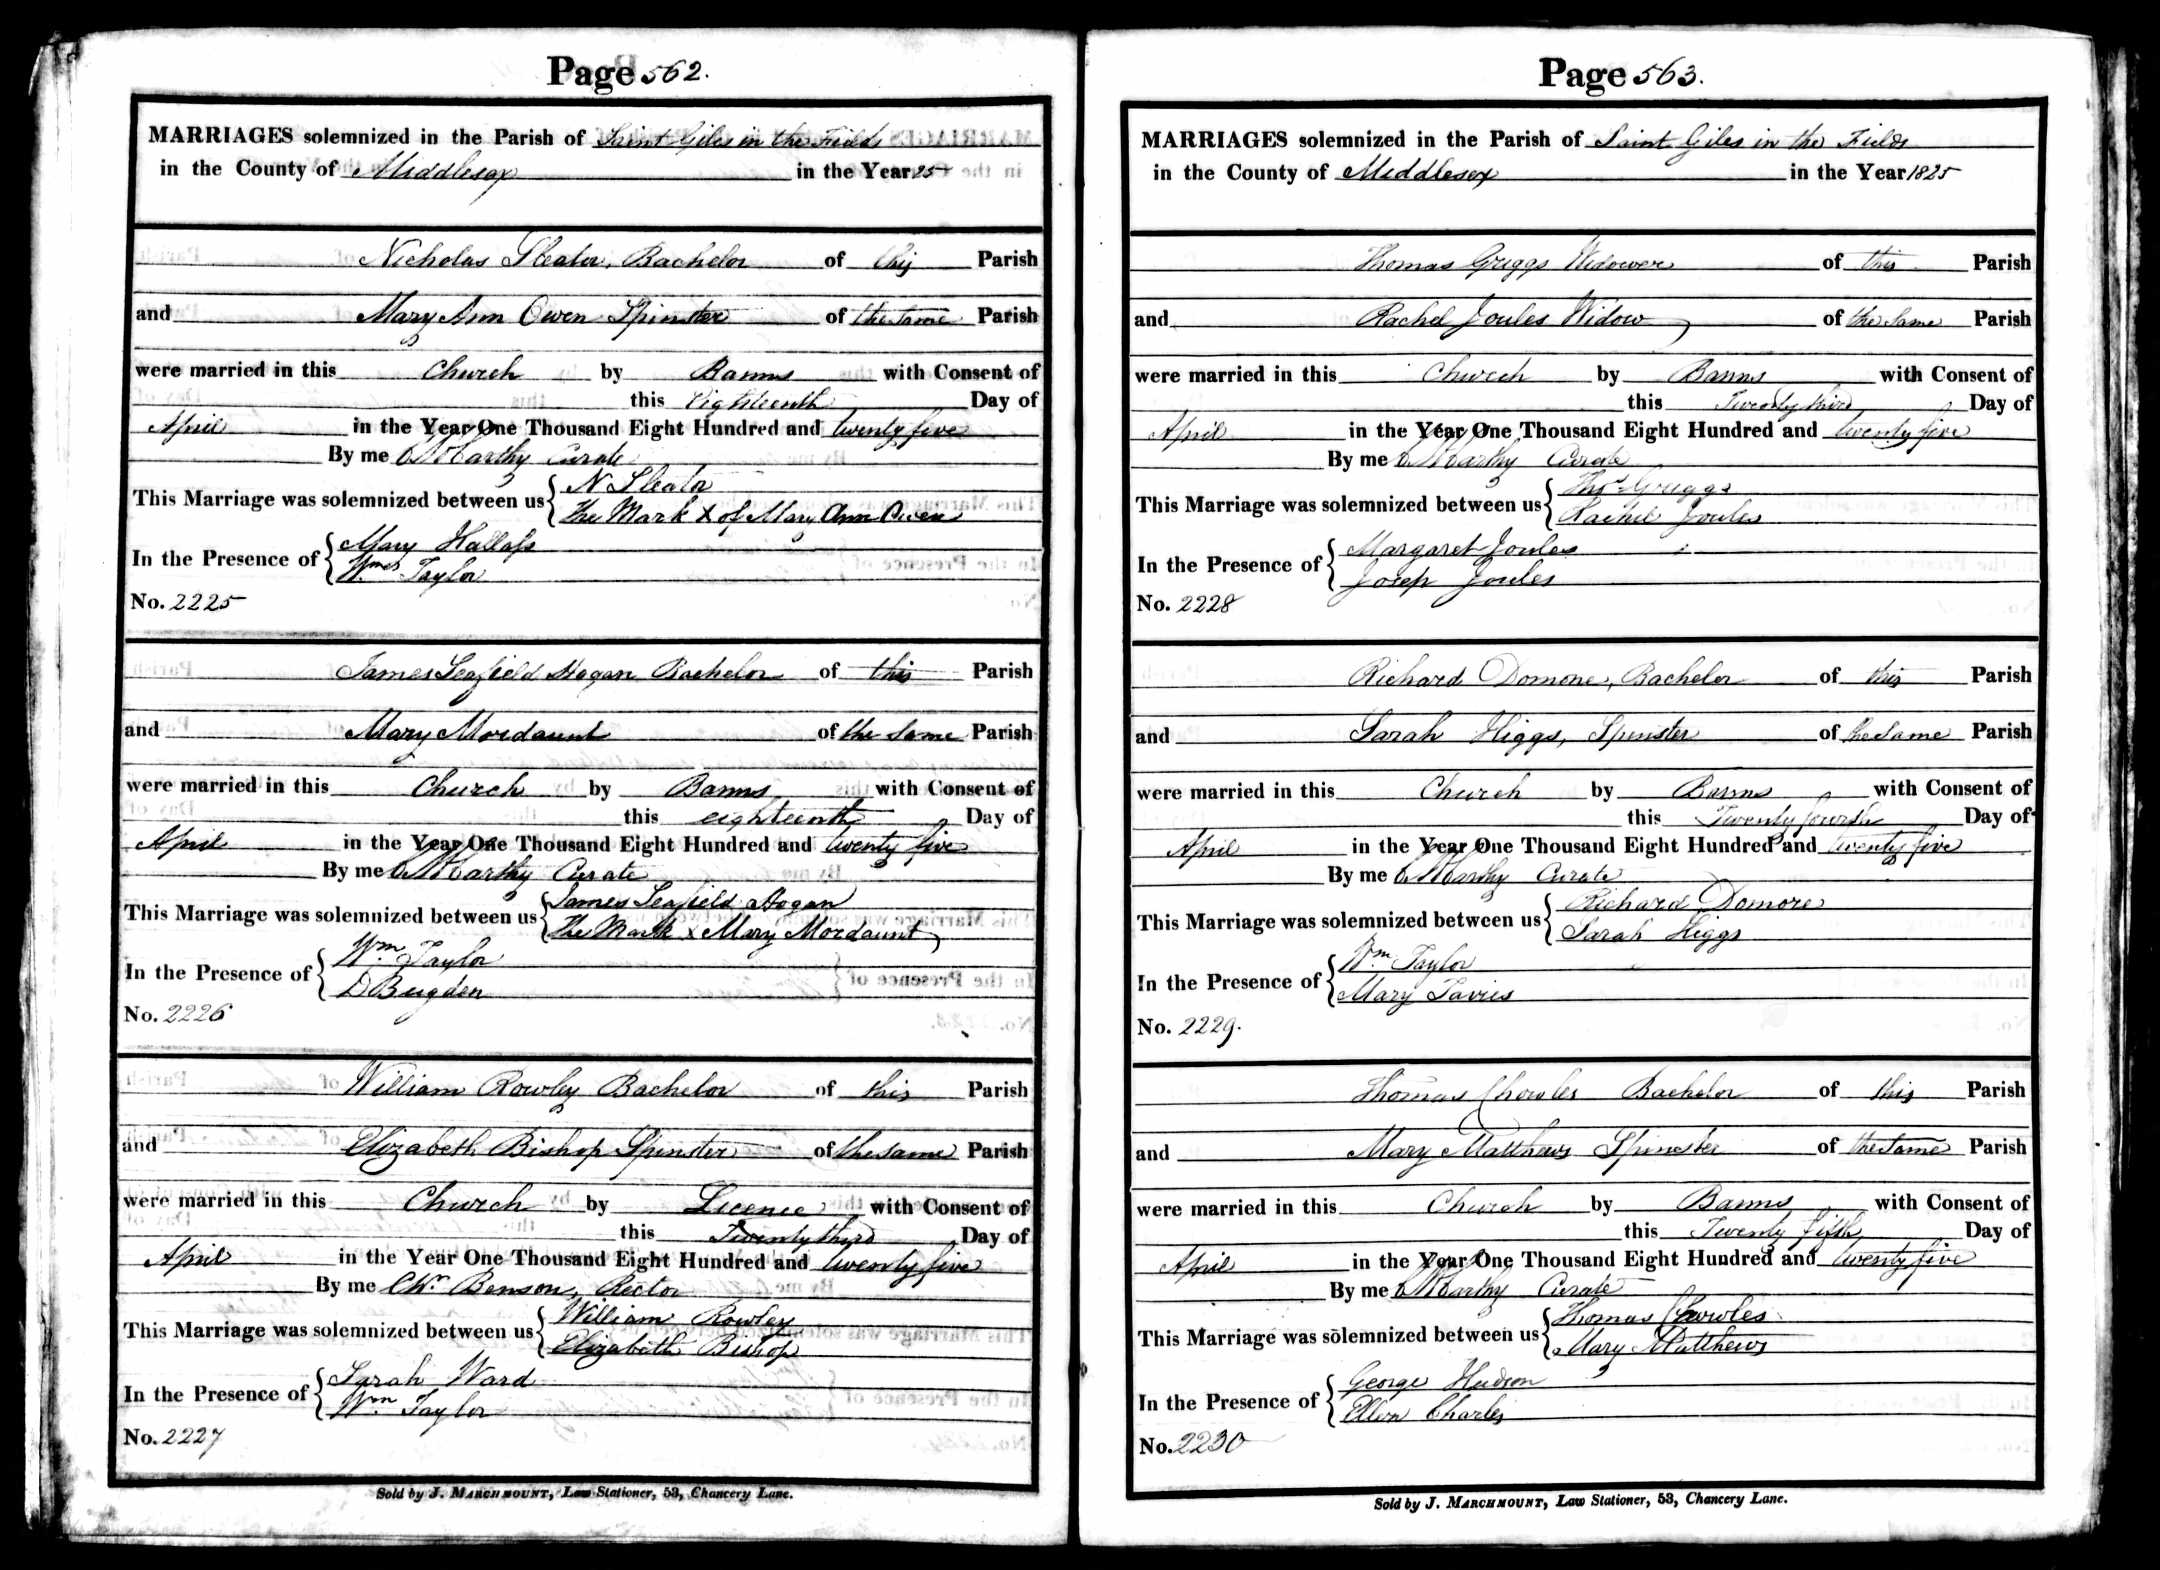 Page 562.
MARRIAGES solemnized in the Parish of Saint Giles in the Fields
in the County of Middlesex in the Year 25
Nicholas Sleator, Bachelor of this Parish
and Mary Ann Owen Spinster of the Same Parish
were married in this Church by Banns with Consent of
this Eighteenth Day of
April in the Year One Thousand Eight Hundred and twenty five
By me Curate
This Marriage was solemnized between us N Sleator
The Mark X of Mary Ann Owen
In the Presence of Mary Hallass
Wm Taylor
No. 2225
James Seafield Hogan Bachelor of this Parish
and Mary Mordaunt of the Same Parish
were married in this Church by Banns with Consent of
this eighteenth Day of
April in the Year One Thousand Eight Hundred and twenty five
By me Curate
This Marriage was solemnized between us James Seafield Hogan
The Mark X Mary Mordaunt
In the Presence of Wm Taylor
D Bugden
No. 2226
William Rowley Bachelor of this Parish
and Elizabeth Bishop Spinster of the Same Parish
were married in this Church by Licence with Consent of
this Twenty third Day of
April in the Year One Thousand Eight Hundred and twenty five
By me Chr. Benson, Rector
This Marriage was solemnized between us William Rowley
Elizabeth Bishop
In the Presence of Sarah Ward
Wm Taylor
No. 2227
Sold by J. MARCHMOUNT, Law Stationer, 53, Chancery Lane.
Page 563.
MARRIAGES solemnized in the Parish of Saint Giles in the Fields
in the County of Middlesex in the Year 1825
Thomas Griggs Widower of this Parish
and Rachel Joules Widow of the Same Parish
were married in this Church by Banns with Consent of
this Twenty third Day of
April in the Year One Thousand Eight Hundred and twenty five
By me Curate
This Marriage was solemnized between us Thos Griggs
Rachel Joules
In the Presence of Margaret Joules
Josep Joules
No. 2228
Richard Domone, Bachelor of this Parish
and Sarah Higgs, Spinster of the Same Parish
were married in this Church by Banns with Consent of
this Twenty fourth Day of
April in the Year One Thousand Eight Hundred and twenty five
By me Curate
This Marriage was solemnized between us Richard Domore
Sarah Higgs
In the Presence of Wm Taylor
Mary Tavies
No. 2229.
Thomas Chowles Bachelor of this Parish
and Mary Matthews Spinster of the Same Parish
were married in this Church by Banns with Consent of
this Twenty fifth Day of
April in the Year One Thousand Eight Hundred and twenty five
By me Curate
This Marriage was solemnized between us Thomas Chowles
Mary Matthews
In the Presence of George Hudson
Ellen Charles
No. 2230
Sold by J. MARCHMOUNT, Law Stationer, 53, Chancery Lane.